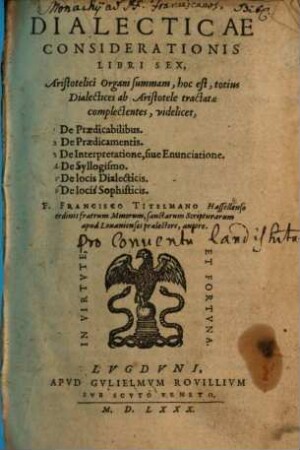 Monachÿ ad St. Franciscanos.
DIALECTICAE
CONSIDERATIONIS
LIBRI SEX,
Aristotelici Organi summam, hoc est, totius
Dialectices ab Aristotele tractatæ
complectentes, videlicet,
1 De Prædicabilibus.
2 De Prædicamentis.
3 De Interpretatione, siue Enunciatione.
4 De Syllogismo.
5 De locis Dialecticis.
6 De locis Sophisticis.
F. FRANCISCO TITELMANO Hassellense
ordinis fratrum Minorum, sanctarum Scripturarum
apud Louanienses prælectore, autore.
Pro Conventu Landishuta
IN VIRTVTE,
ET FORTVNA.
LVGDVNI,
APVD GVLIELMVM ROVILLIVM
SVB SCVTO VENETO,
M. D. LXXX.